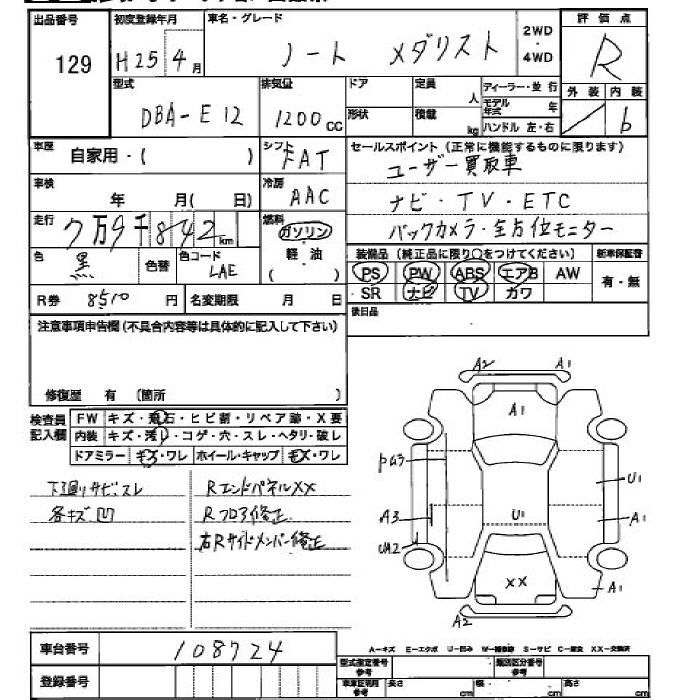 出品番号 初度登録年月 車名・グレード 評価点
129 H25年4月 ノート メダリスト 2WD・4WD R
型式 排気量 ドア 定員 人 ディーラー・並行 外装 内装
DBA-E12 1200cc 形状 積載 kg モデル年式 年 ハンドル 左・右 / b
車歴 自家用・( ) シフト FAT セールスポイント(正常に機能するものに限ります)
ユーザー買取車
車検 年 月( 日) 冷房 AAC ナビ・TV・ETC
走行 7万9千842km 燃料 ガソリン バックカメラ・全方位モニター
色 黒 色替 色コード LAE 軽・油 ( ) 装備品(純正品に限り○をつけてください) 新車保証書
PS PW ABS エアB AW 有・無
R券 8510円 名変期限 月 日 SR ナビ TV カワ
後日品
注意事項申告欄(不具合内容等は具体的に記入して下さい)
修復歴 有 (箇所 )
検査員記入欄 FW キズ・飛石・ヒビ割・リペア跡・X要
内装 キズ・汚レ・コゲ・穴・スレ・ヘタリ・破レ
ドアミラー キズ・ワレ ホイール・キャップ キズ・ワレ
下廻りサビ・スレ RエンドパネルXX
各キズ凹 Rフロア修正
右Rサイドメンバー修正
A2 A1
A1
U1
A3 U1 A1
UA2
XX A1
A2
A-キズ E-エクボ U-凹み W-補修跡 S-サビ C-腐食 XX-交換済
車台番号 108724
型式指定番号 参考 類別区分番号 参考
登録番号 車車証明用 参考 長さ cm 幅 cm 高さ cm